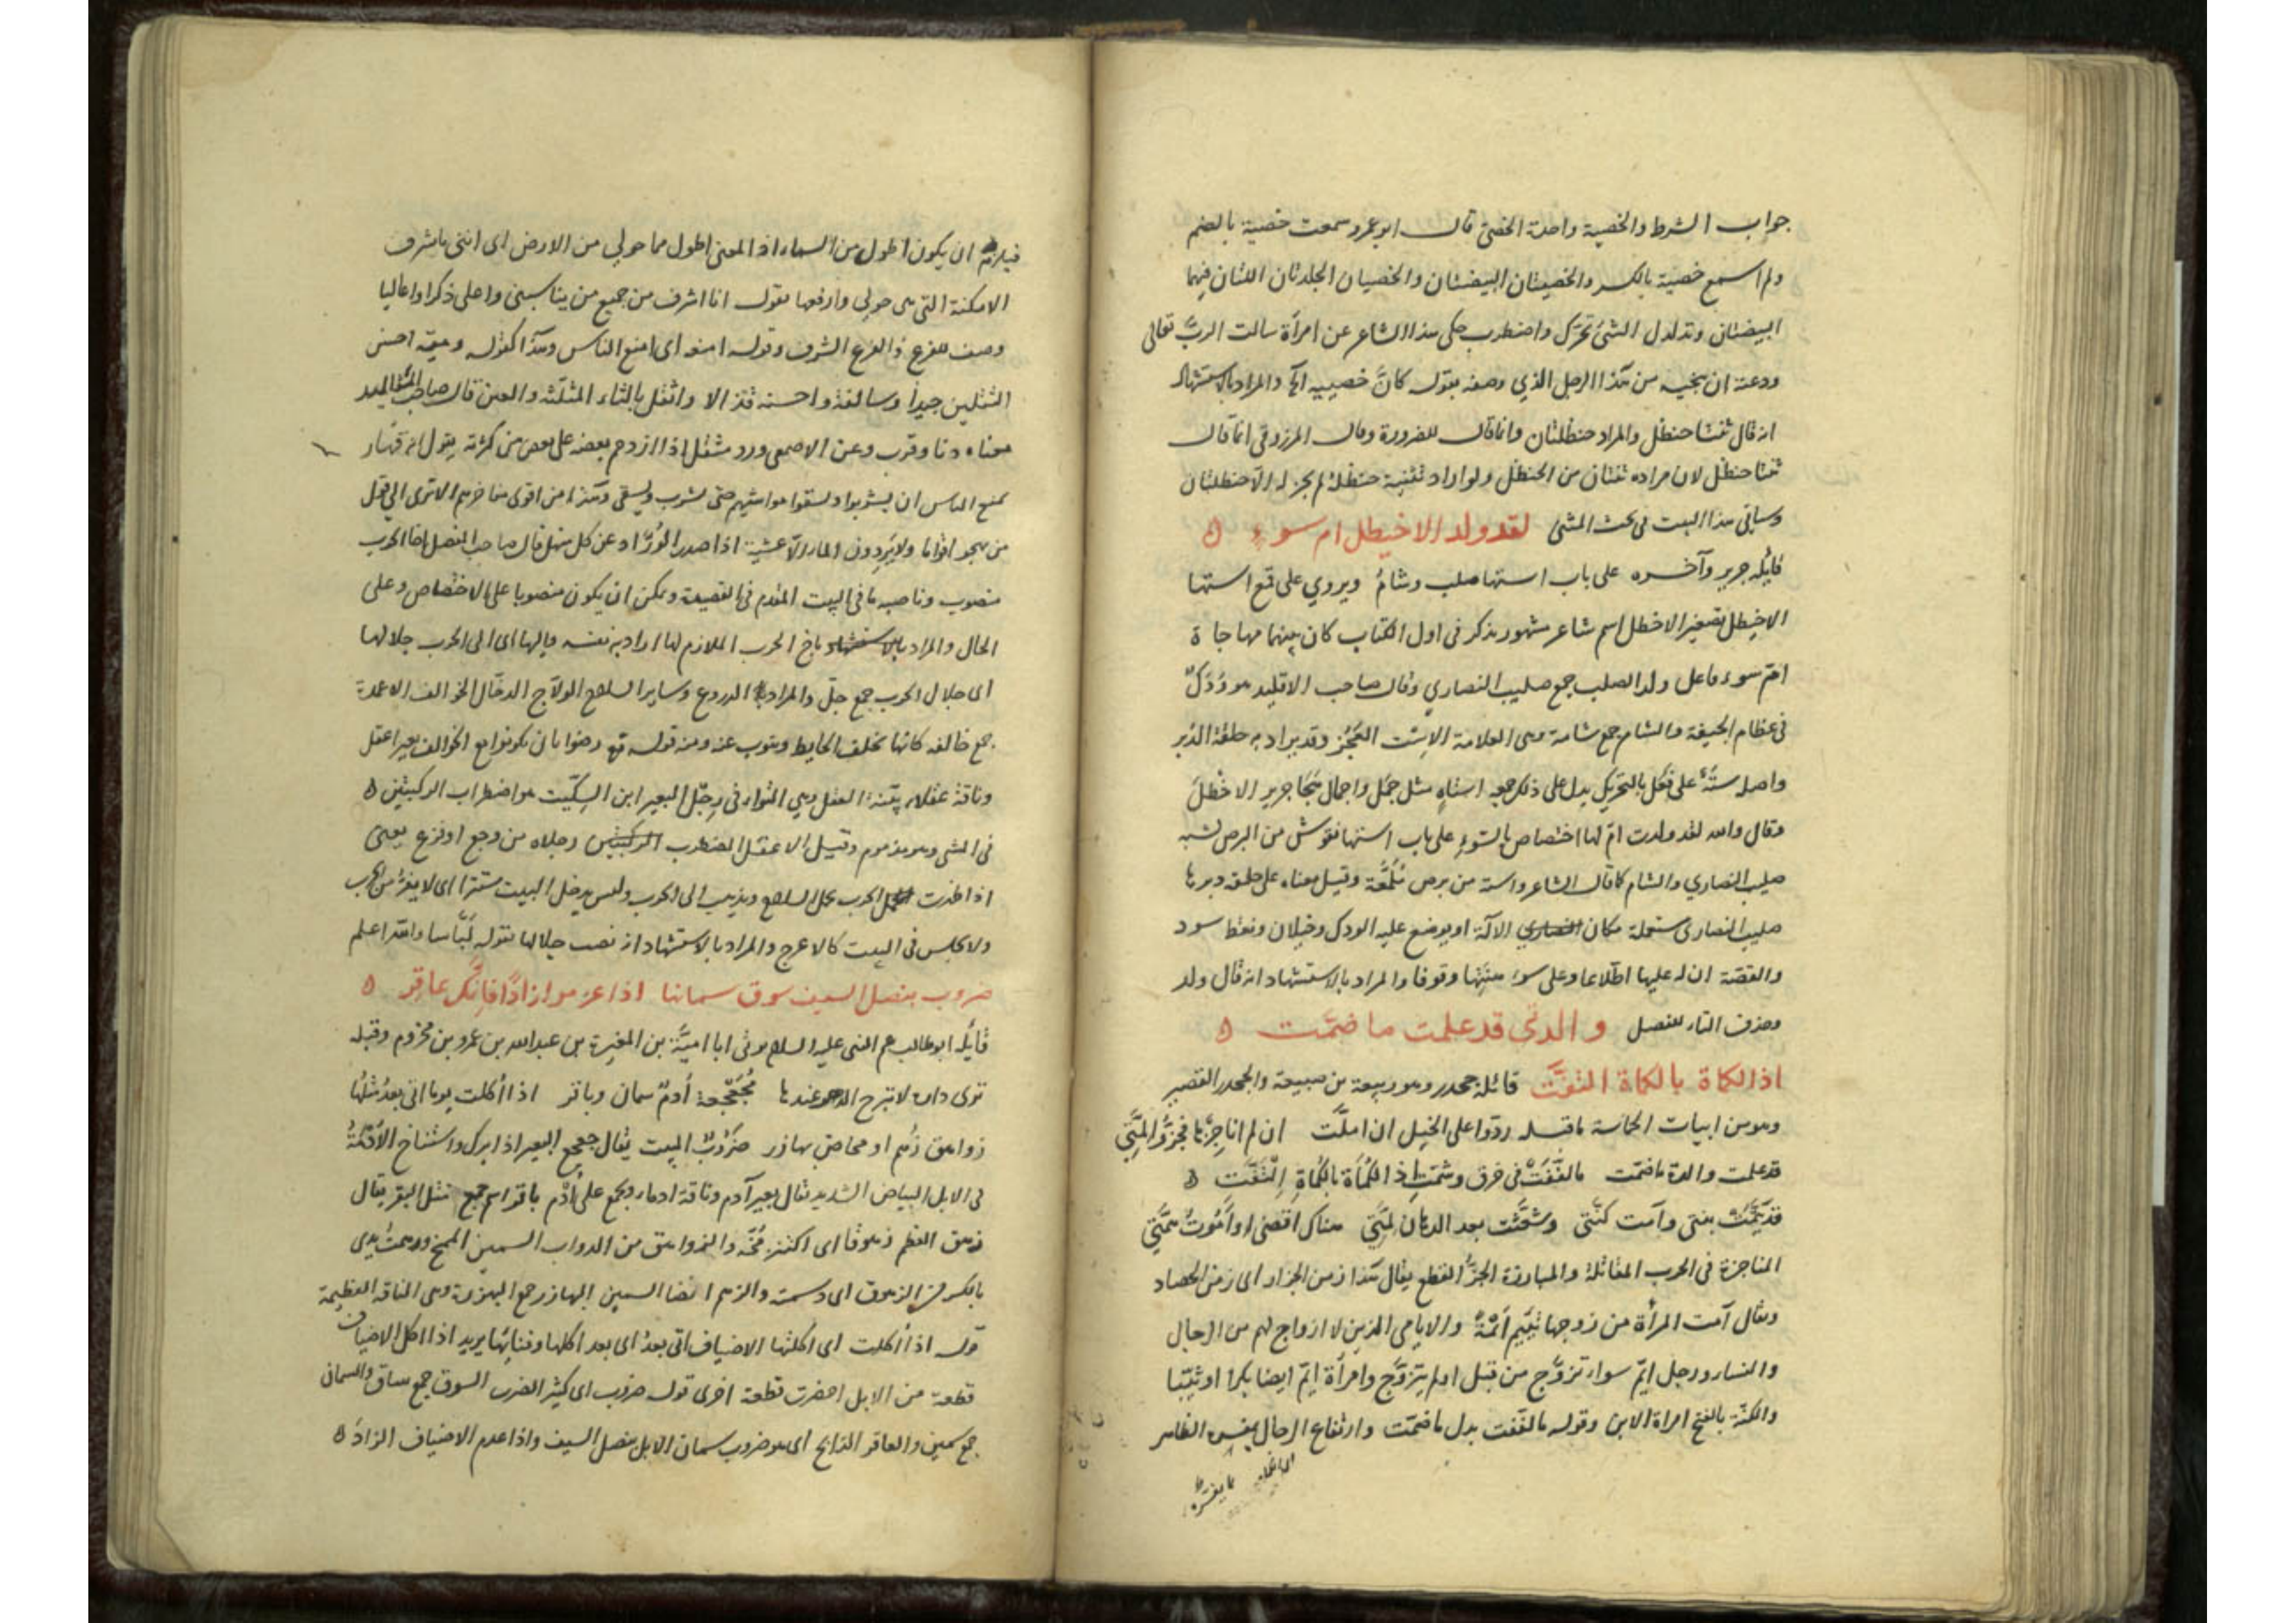 جواب الشرط والخصية واحدة الخصى قال ابو عمرو سمعت خصية بالضم
ولم اسمع خصية بالكسر والخصيتان البيضتان والخصيان الجلدتان اللتان فيهما
البيضتان وتدلدل الشئ تحرّك واضطرب حكى هذا الشاعر عن امرأة سالت الربّ تعالى
ودعته ان ينجيه من هذا الرجل الذي وصفه بقوله كانّ خصييه الخ والمراد بالاستشهاد
انه قال ثنتا حنظل والمراد حنظلتان وانما قال للضرورة وقال المرزوقى انما قال
ثنتا حنظل لان مراده ثنتان من الحنظل ولو اراد تثنية حنظلة لم يجز له الّا حنظلتان
وسياتي هذا البيت فى بحث المثنى لقد ولد الاخيطل ام سوء ه
قايله جرير وآخره على باب استها صلب وشامُ ويروي على قمع استها
الاخيطل تصغير الاخطل اسم شاعر مشهور يذكر فى اول الكتاب كان بينهما مهاجاة
امّ سوء فاعل ولد الصلب جمع صليب النصاري وقال صاحب الاقليد هو وَدَكٌ
فى عظام الجيفة والشام جمع شامة وهى العلامة الاِست العَجُز وقد يراد به حلقة الدُبر
واصله سَتَهٌ على فَعَل بالتحريك يدل على ذلك جمعه استاهٍ مثل جَمَل واجمال هَجَا جرير الاخطلَ
وقال والله لقد ولدت امّ لها اختصاص بالسّوءِ على باب استها نقوش من البرص تشبه
صليب النصاري والشام كما قال الشاعر واسته من برص مُلَمَّعَة وقيل معناه على حلقة دبرها
صليب النصارى مستعملة مكان الآلة او يوضع عليه الودك وخيلان ونقط سود
والقصّة ان له عليها اطّلاعا وعلى سوء وقوفا والمراد بالاستشهاد انه قال ولد
وحذف التاء للفصل والدتى قد علمت ما ضمّت ه
اذا الكماة بالكماة التفتّ قائله جحدر وهو ربيعة بن ضبيعة والجحدر القصير
وهو من ابيات الحماسة ما قبله ردّوا على الخيل ان املّت ان لم اناجزها فجزّوا لمّتى
قد علمت والدة ما ضمّت ما لفّفَتْ فى خرق وشمّتِ اذ الكُمَاة بالكُماةِ اِلْتَفّت ه
قد يَتِمَتْ بنتى وآمت كَنَّتى وشعثت بعد الدهان لمّتى هناك
المناجزة فى الحرب المقاتلة والمبارزة الجزّ القطع يقال هذا زمن الجزار اى زمن الحصاد
ويقال آمت المرأة من زوجها تئيم ايمة والايامى الذين لا ازواج لهم من الرجال
والنساء ورجل ايّم سواء تزوّج من قبل او لم يتزوّج وامرأة ايّم ايضا بكرا او ثيّبا
والكنّة بالفتح امراة الابن وقوله ما لفّفت بدل ما ضمّت وارتفاع الرجال
فيلزم ان يكون اطول من السماء اذ المعنى اطول مما حولي من الارض اى اننى باشرف
الامكنة التى هى حولي وارفعها يقول انا اشرف من جميع من يناسبنى واعلى ذكرا واعاليا
وصف للفرع ذا الفرع الشرف وقوله امنعه اى امنع الناس وهذا كقوله وميّة احسن
الثقلين جيداً وسالفة واحسنه قذالا بالثاء المثلثة والعين قال صاحب
معناه دنا وقرب وعن الاصمعى ورد اذا ازدحم بعضه على بعض من كثرته يقول
يمنع الناس ان يشربوا ويسقوا مواشيهم حتى يشرب ويسقى وهذا من اقوى مفاخرهم الا ترى الى قول
من يهجو اقواما ولا يَرِدون الماء الّا عشيّة اذا صدر الوُرّاد عن كل منهل قال صاحب المفصل اخا الحرب
منصوب وناصبه ما فى البيت المقدم فى القصيدة ويمكن ان يكون منصوبا على الاختصاص وعلى
الحال والمراد باخ الحرب الملازم لها اراد به نفسه واليها اى الى الحرب جلالها
اى جلال الحرب جمع جلّ والمراد الدروع وساير السلاح الولّاج الدخّال الخوالف الاعمدة
جمع خالفة كانها تخلف الحايط وتنوب عنه ومنه قوله تع رضوا بان يكونوا مع الخوالف بعير اعقل
وناقة عقلاء بيّنة العقل وهي التواء فى رِجل البعير ابن السكّيت هو اضطراب الركبتين ه
فى المشى وهو مذموم وقيل الاعقل المضطرب رجلاه من وجع او فزع يعنى
اذا اخذت الحرب يحمل السلاح ويذهب الى الحرب وليس يدخل البيت مستترا اى لا يفرّ من الحرب
ولا يجلس فى البيت كالاعرج والمراد بالاستشهاد انه نصب جلالها بقوله لبّاسا والله اعلم
ضروب بنصل السيف سوق سمانها اذا عدموا زاداً فانّك عاقر ه
قايله ابو طالب عم النبى عليه السلام يرثى ابا اميّة بن المغيرة بن عبد الله بن عمرو بن مخزوم وقبله
ترى داره لا تبرح الدهر عندها مُجَعجَعة أدمٌ سمان وباقر اذا أكلت يوما اتى بعدُ مثلُها
زواهق زُهم او مخاض بهازر ضَرُوبٌ البيت يقال جعجع البعير اذا برك واستناخ الأدْمَةُ
فى الابل البياض الشديد يقال بعير آدم وناقة ادماء ويجمع على أُدْم باقر اسم جمع مثل البقر يقال
زهق العظم زهوقا اى اكتنز مُخّه والزواهق من الدواب السمين الممخ
بالكسر من الزهوق اى دسمت والزهم ايضا السمين البهازر جمع البهزرة وهى الناقة العظيمة
قوله اذا أكلت اى اكلتها الاضياف اتى بعدُ اى بعد اكلها وفنائها يريد اذا اكل الاضياف
قطعة من الابل احضرت قطعة اخرى قوله ضروب اى كثير الضرب السوق جمع ساق والسمان
جمع سمين والعاقر الذابح اى هو ضروب سمان الابل بنصل السيف واذا عدم الاضياف الزادَ ه